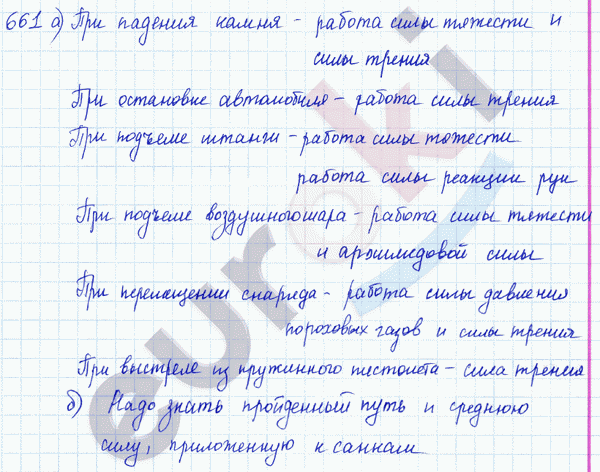 661 а) При падения камня - работа силы тяжести и
силы трения
При остановке автомобиля - работа силы трения
При подъеме штанги - работа силы тяжести
работа силы реакции рук
При подъеме воздушного шара - работа силы тяжести
и архимедовой силы
При перемещении снаряда - работа силы давления
пороховых газов и силы трения
При выстреле из пружинного пистолета - сила трения
б) Надо знать пройденный путь и среднюю
силу, приложенную к санкам
euroki